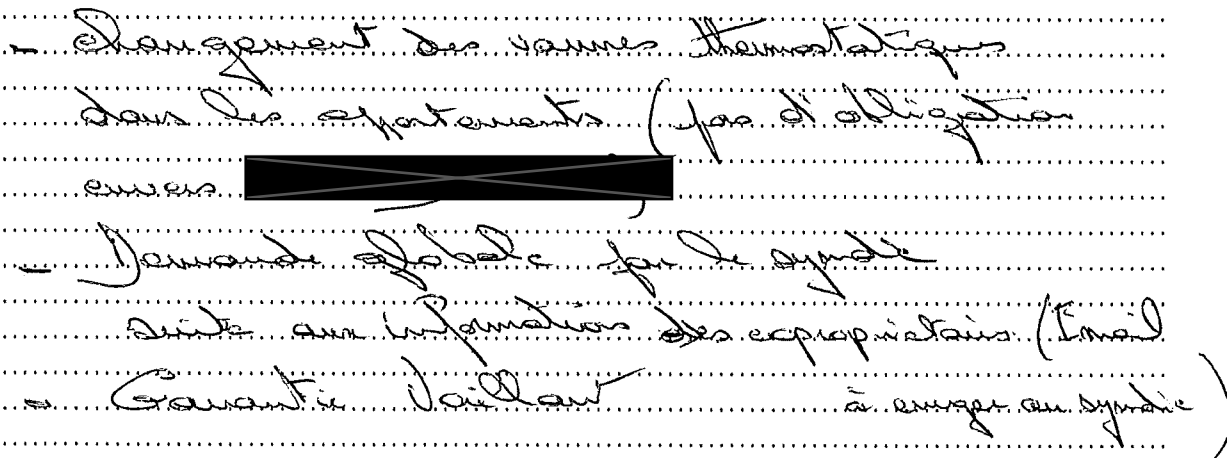 - changement des vannes thermostatiques
dans les appartements (pas d'obligation
envers
- Demande globale par le syndic
suite aux informations des copropriétaires (Email
- Garantie Vaillant à envoyer au syndic)